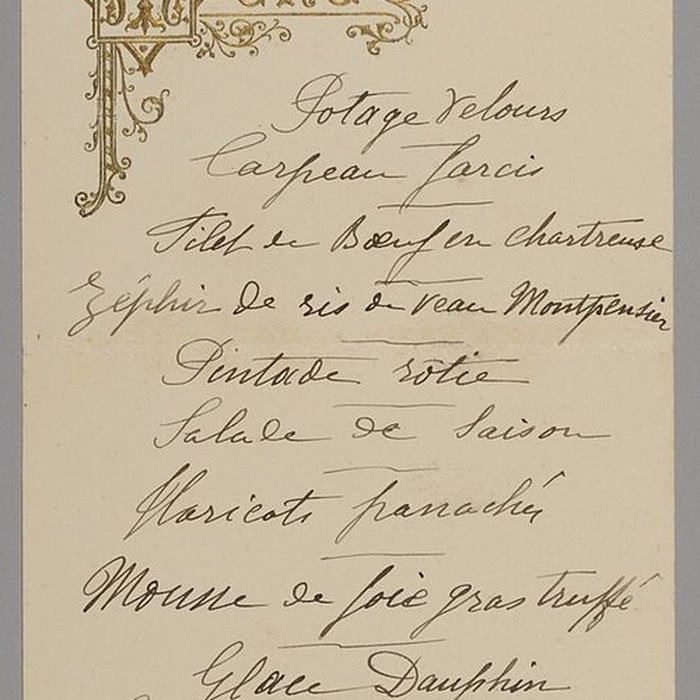 Potage Velours
Carpeau farcis
Filet de Bœuf en chartreuse
Zéphir de ris de veau Montpensier
Pintade rôtie
Salade de Saison
Haricots panachés
Mousse de foie gras truffé
Glace Dauphin